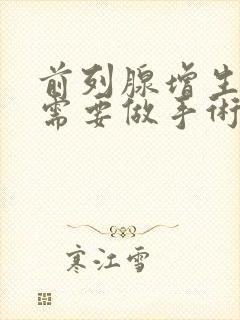 前列腺增生
需要做手術
寒江雪